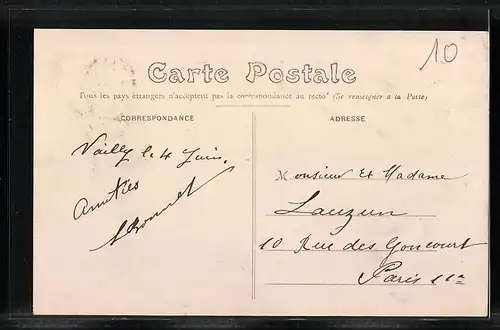 10
Carte Postale
Tous les pays étrangers n'acceptent pas la correspondance au recto (Se renseigner à la Poste)
CORRESPONDANCE
ADRESSE
Vailly le 4 Juin.
Amitiés
Monsieur et Madame
Lauzun
10 Rue des Goncourt
Paris 11e